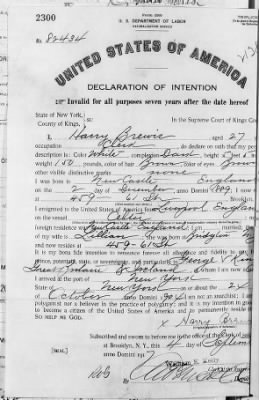 2300
Form 2203
U. S. DEPARTMENT OF LABOR
NATURALIZATION SERVICE
No. 82434
UNITED STATES OF AMERICA
DECLARATION OF INTENTION
Invalid for all purposes seven years after the date hereof
State of New York,
County of Kings, ss:
In the Supreme Court of Kings
I, Harry Brewis aged 27
occupation Clerk do declare on oath that my
description is: Color White, complexion Dark, height 5
weight 150 pounds, color of hair Brown, color of eyes Brown
other visible distinctive marks none
I was born in New Castle England
on the 2 day of December, anno Domini 1889
at 459-61 St Brooklyn
I emigrated to the United States of America from Liverpool England
on the vessel Celtic
foreign residence was New Castle England
of my wife is Lillian she was born Babylon
and now resides at 459-61 St
It is my bona fide intention to renounce forever all allegiance and fidelity to any
prince, potentate, state, or sovereignty, and particularly to George V
Great Britain & Ireland of whom I am now
I arrived at the port of New York
State of New York on or about the 24
of October anno Domini 1904 I am not an anarchist;
polygamist nor a believer in the practice of polygamy; and it is my intention in good
to become a citizen of the United States of America and to permanently reside
SO HELP ME GOD.
x Harry
Subscribed and sworn to before me in the office of
at Brooklyn, N. Y., this 4 day of
anno Domini 1917
[SEAL]
William E. Kelly